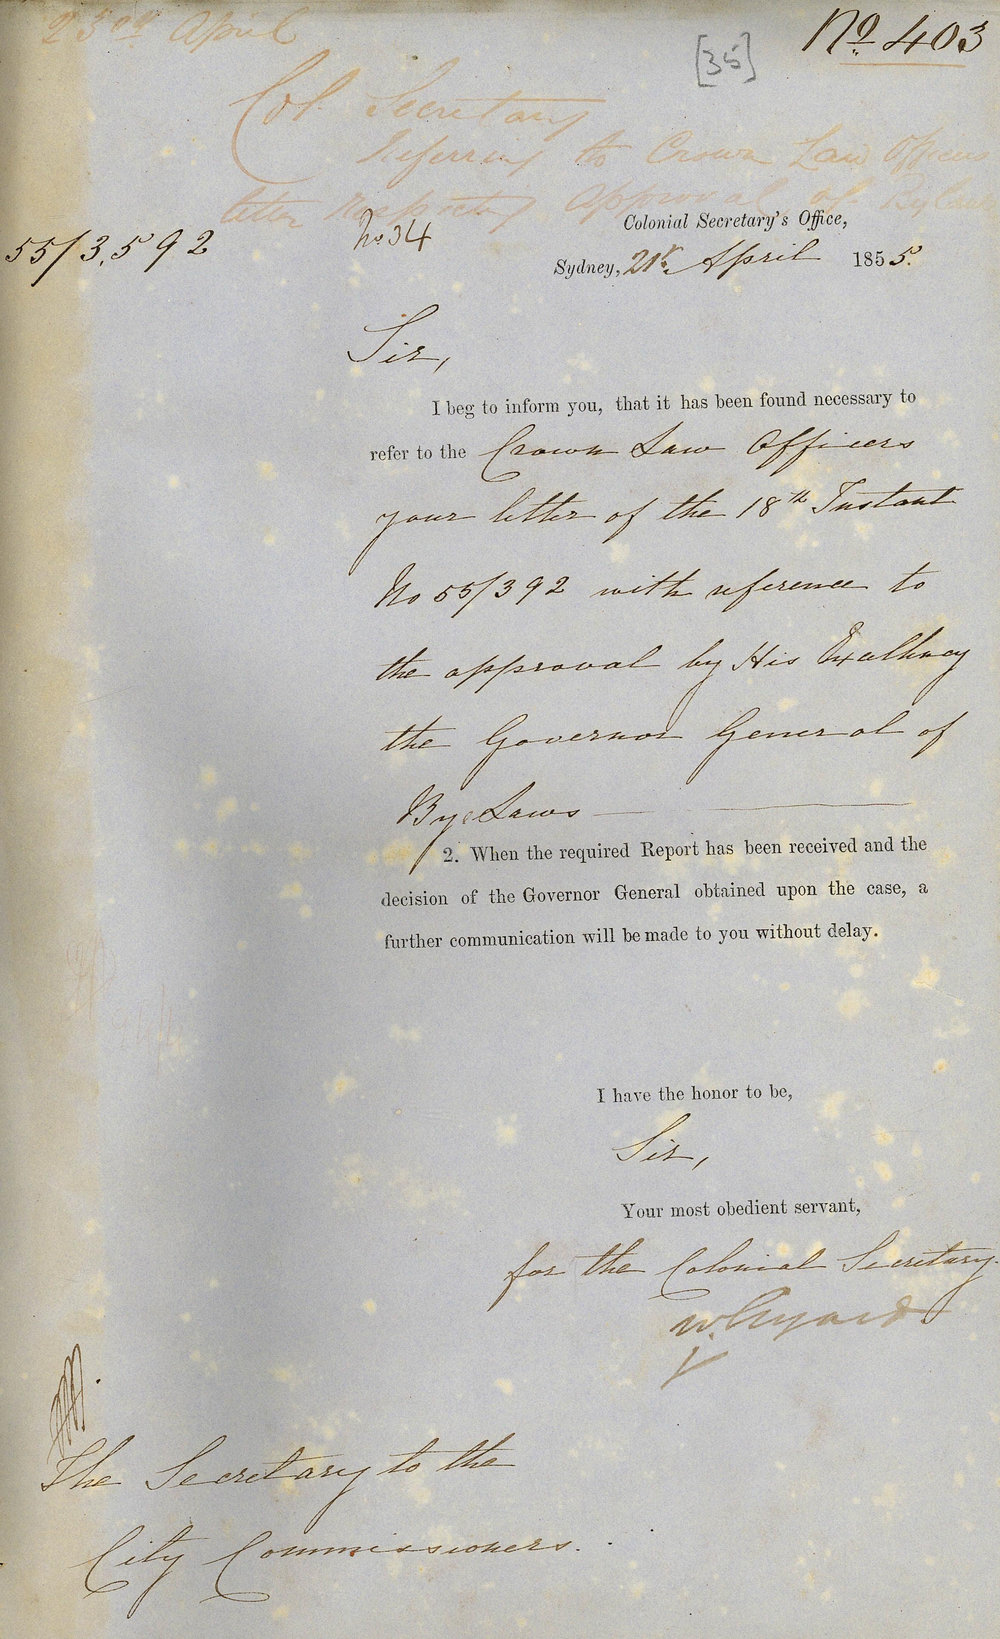 23rd April
No 403
[35]
Col. Secretary
Referring to Crown Law Officers
letter respecting approval of Bylaws
55/3592
No 34
Colonial Secretary's Office,
Sydney, 21st April 1855.
Sir,
I beg to inform you, that it has been found necessary to
refer to the Crown Law Officers
your letter of the 18th Instant
No 55/392 with reference to
the approval by His Excellency
the Governor General of
Bye Laws
2. When the required Report has been received and the
decision of the Governor General obtained upon the case, a
further communication will be made to you without delay.
I have the honor to be,
Sir,
Your most obedient servant,
for the Colonial Secretary.
The Secretary to the
City Commissioners.